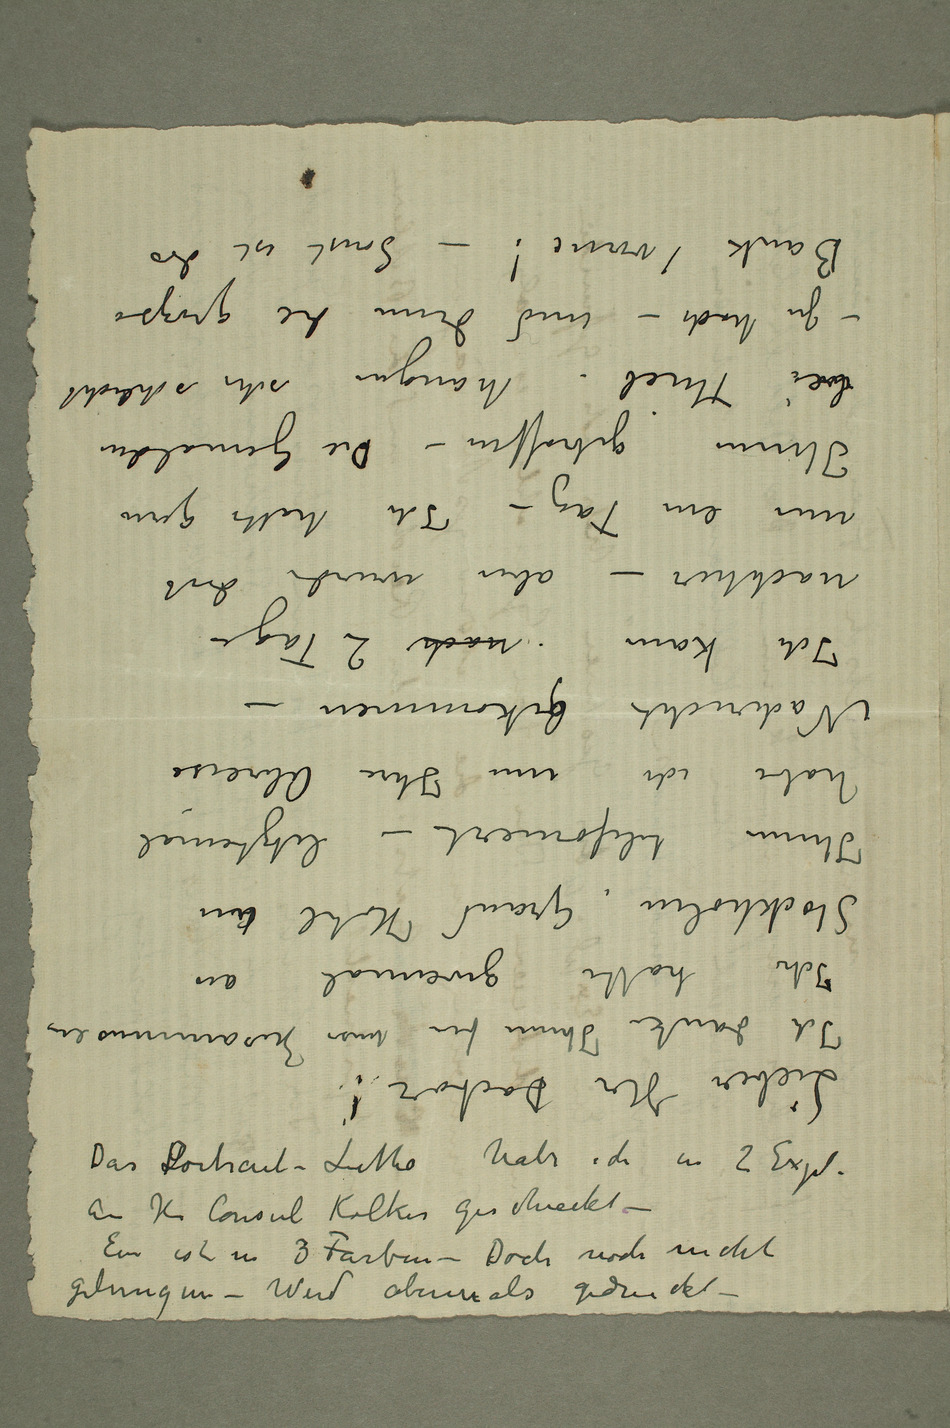 Lieber Her Doctor!
Ich danke Ihnen für Zusammensein
Ich hatte zweimal an
Stockholm, Grand Hotel an
Ihnen telefoniert – letztemal
habe ich nun Ihre Abreise
Nachricht bekommen –
Ich kam nach 2 Tage
nachher – aber wurde dort
nur ein Tag – Ich hatte gern
Ihnen getroffen – Die Gemälden
bei Thiel. hangen sehr schlecht
– zu hoch – und denn die grosse
Bank vorne! – Sonst ist das
Das Portrait-Litho habe ich in 2 Expl.
an Hr Consul Kolker geschickt –
Ein ist in 3 Farben – Doch noch nicht
gelungen – Wird abermals gedruckt –